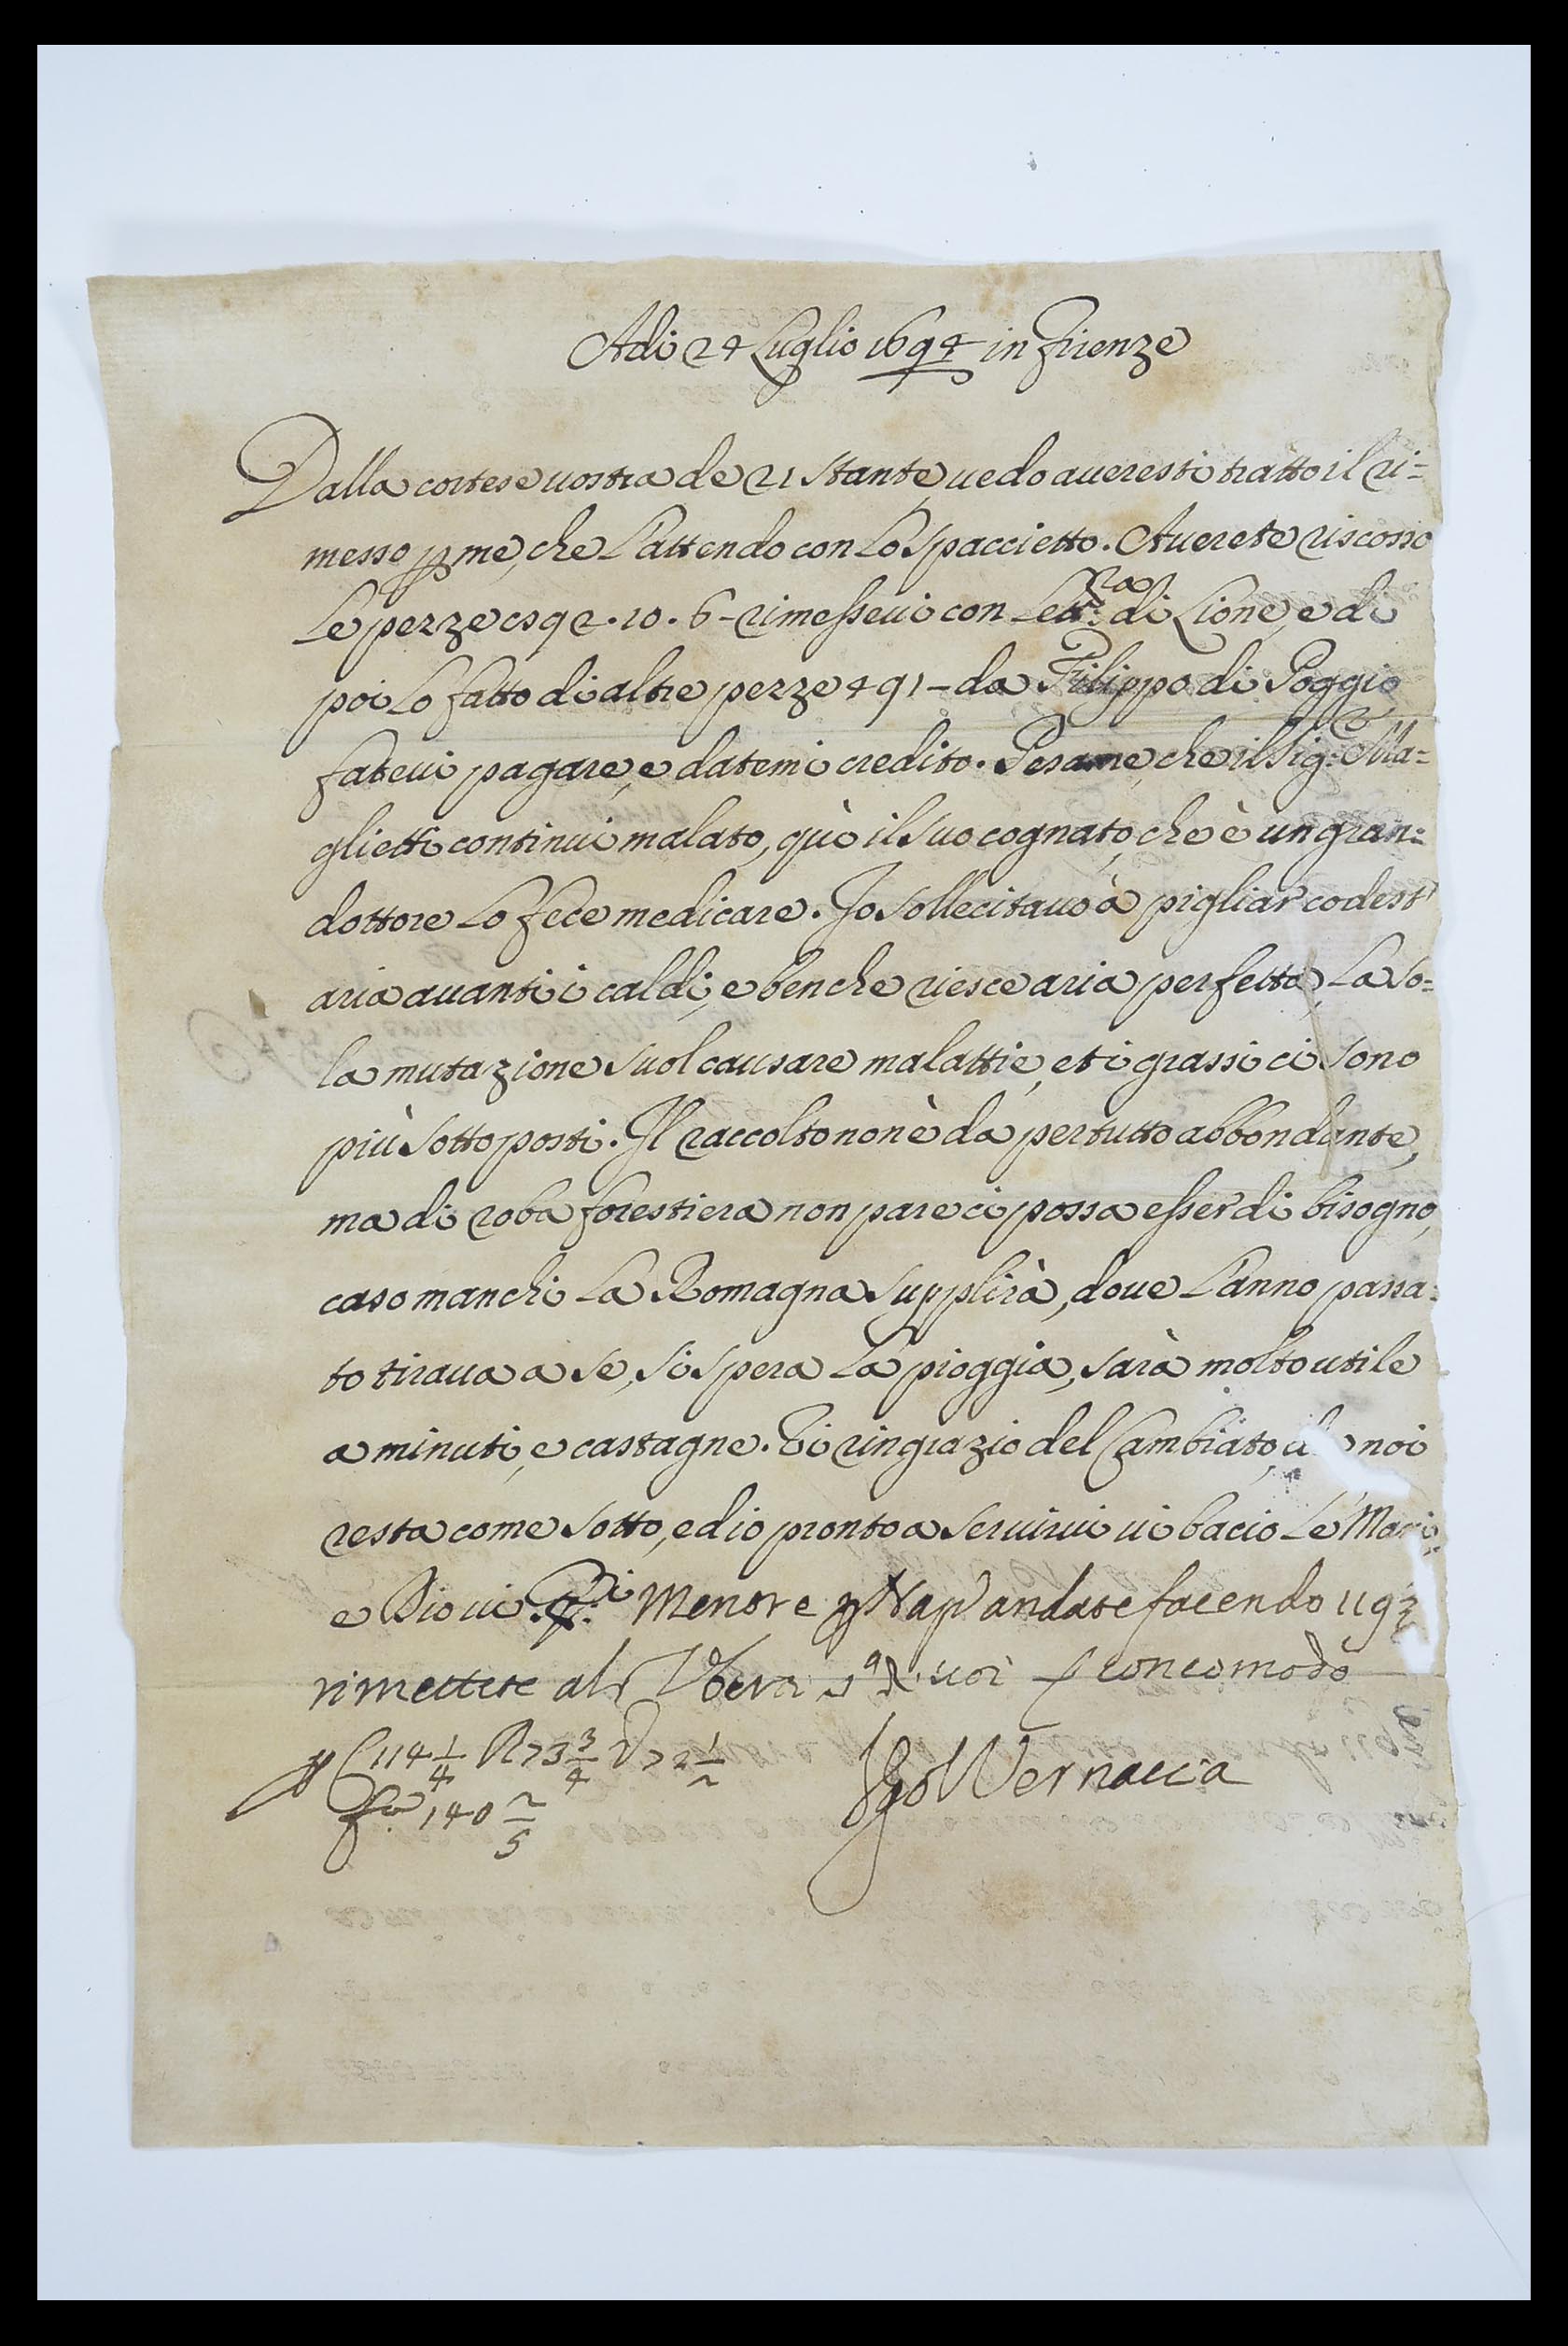 Adi 24 Luglio 1694 in Firenze
Dalla cortese vostra de 21 stante, vedo averesti tratto il ri=
messo p me, che L'attendo con Lo spaccietto. Averete riscosso
Le pezze 592.10.6- rimessevi con Lettra di Lione, e di
poi Lo fatto di altre pezze 491 - da Filippo di Poggio
fatevi pagare, e datemi credito. Pesame, che il Sig:e Ma=
glietti continui malato, quì il suo cognato, che è un gran=
dottore Lo fece medicare. Io sollecitavo à pigliar codest'
aria avanti i caldi, e benche riesce aria perfetta, La so=
la mutazione suol causare malattie, et i grassi ci sono
più sottoposti. Il raccolto non è da per tutto abbondante,
ma di roba forestiera non pare ci possa esser di bisogno,
caso manchi La Romagna supplirà, dove L'anno passa=
to tirava a se, si spera La pioggia, sarà molto utile
a minuti, e castagne. Vi ringrazio del Cambiato, noi
resta come sotto, ed io pronto a servirvi vi bacio Le Mani,
e Dio vi Mentre p Nap andate facendo
rimettete al voi con comodo
p C 114 1/4 R 73 3/4 V 72 1/2
140 2/5
Vernaccia